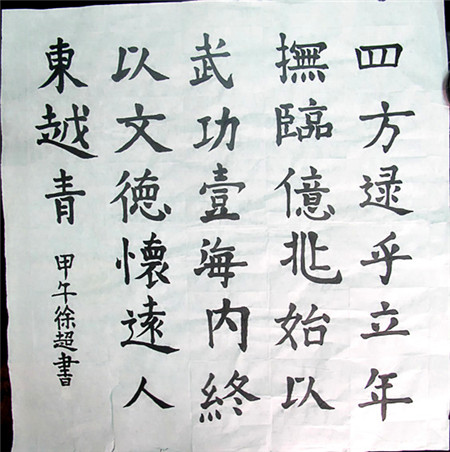 四方逮乎立年
撫臨億兆始以
武功壹海内終
以文德懷遠人
東越青
甲午徐超書